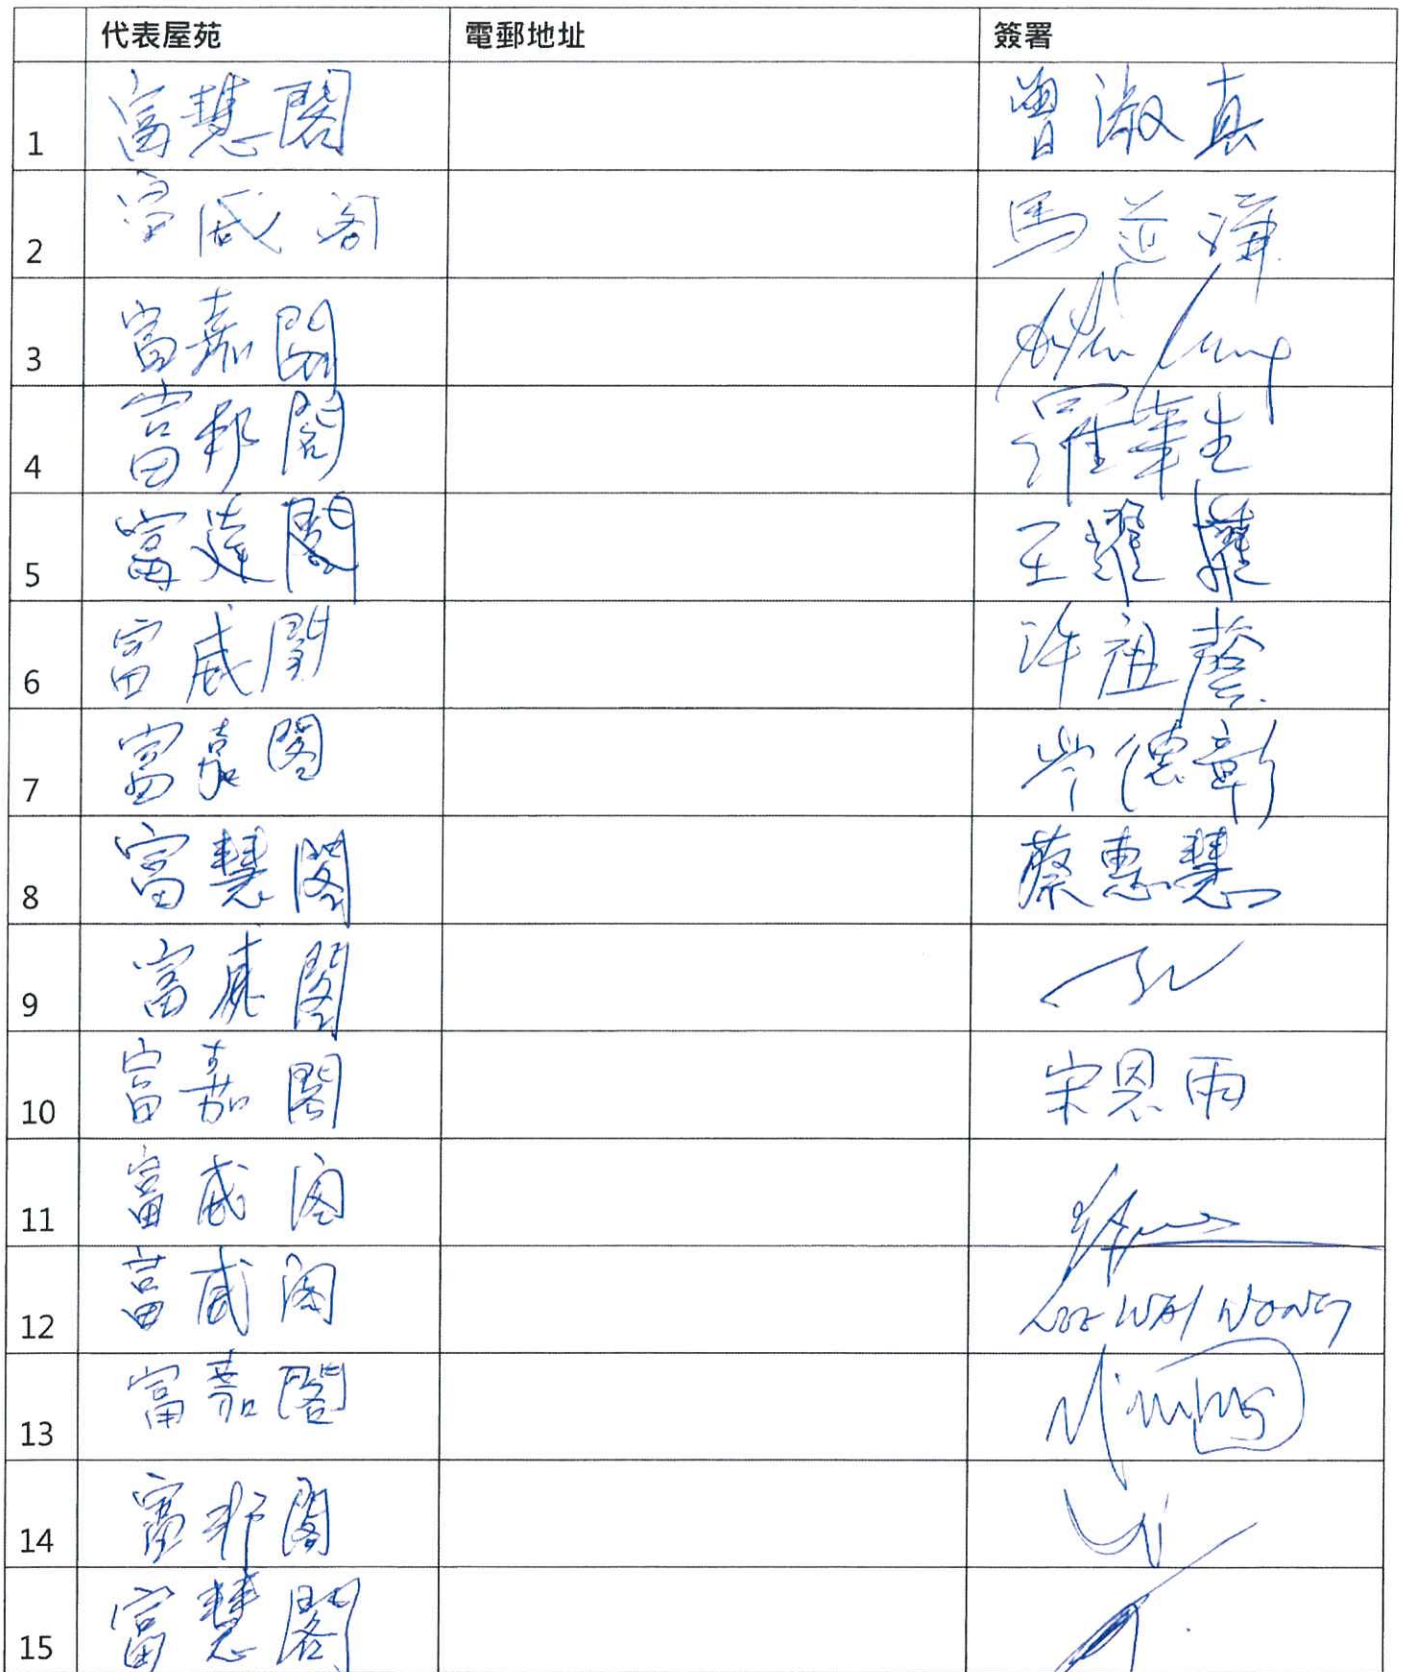 代表屋苑 電郵地址 簽署
1 富慧閣 曾淑真
2 富威閣 馬
3 富嘉閣
4 富邦閣 羅華生
5 富達閣 王耀
6 富威閣 许祖
7 富嘉閣 岑德彰
8 富慧閣 蔡惠慧
9 富威閣
10 富嘉閣 宋恩雨
11 富威阁
12 富威阁 LEE WAI WONG
13 富嘉閣
14 富邦閣
15 富慧閣